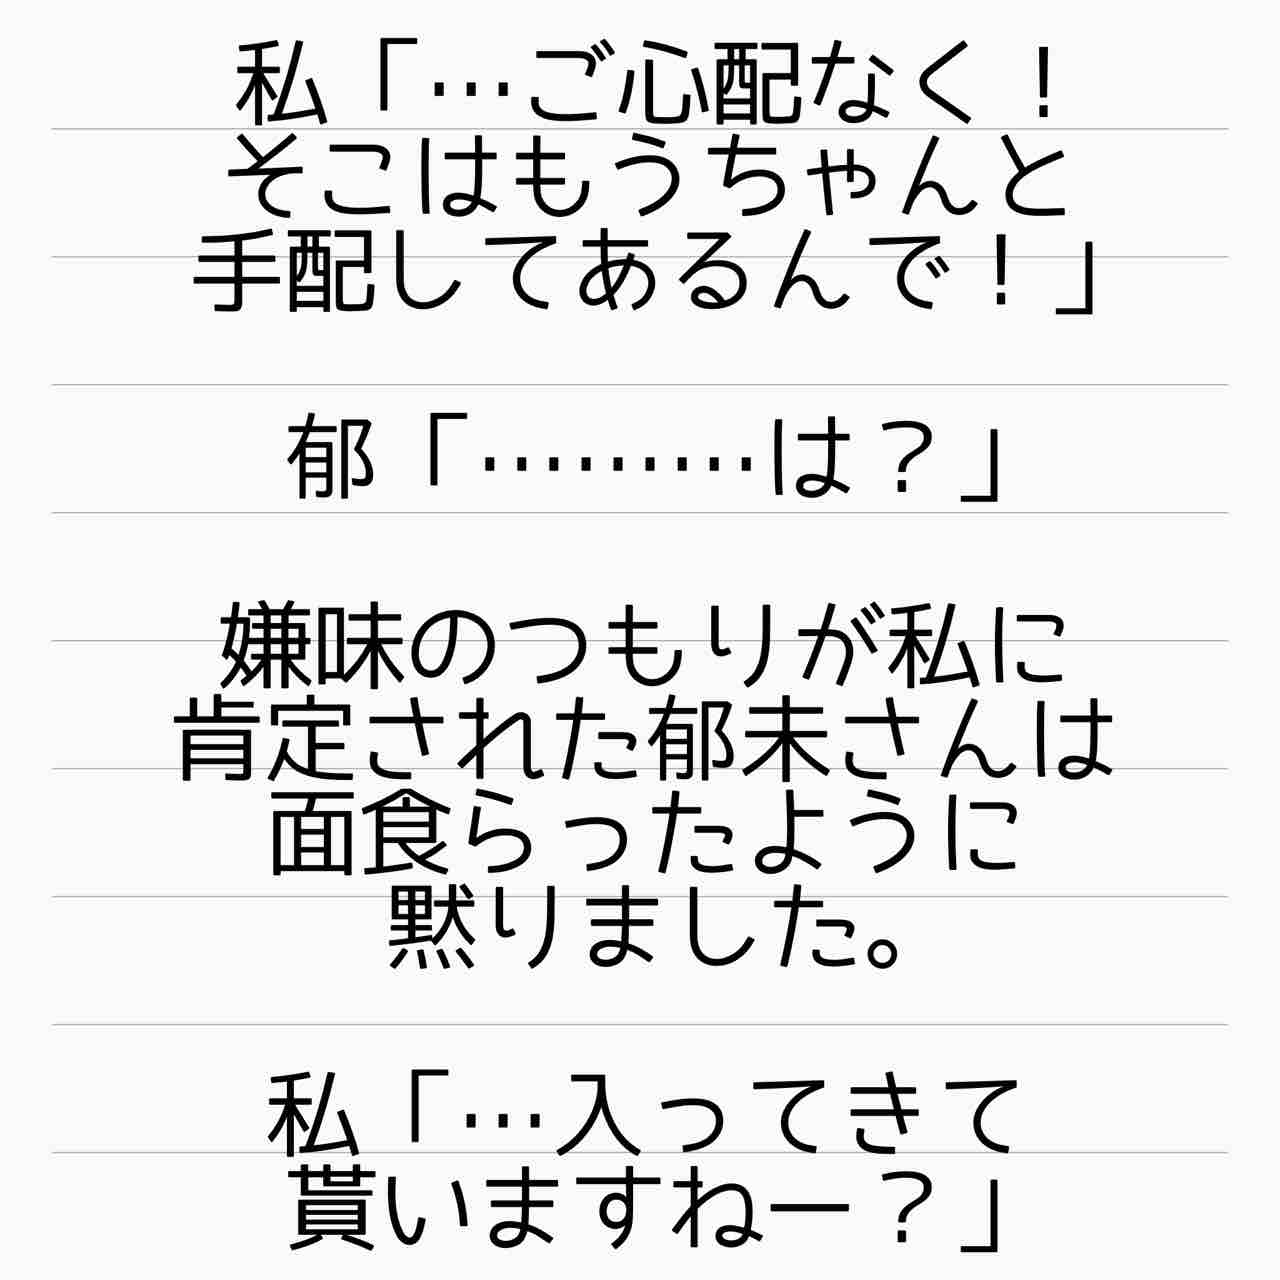 私「…ご心配なく！
そこはもうちゃんと
手配してあるんで！」
郁「………は？」
嫌味のつもりが私に
肯定された郁未さんは
面食らったように
黙りました。
私「…入ってきて
貰いますねー？」